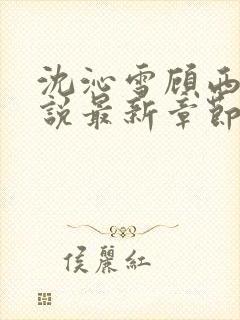 沈沁雪顾西
說最新章節
侯麗紅